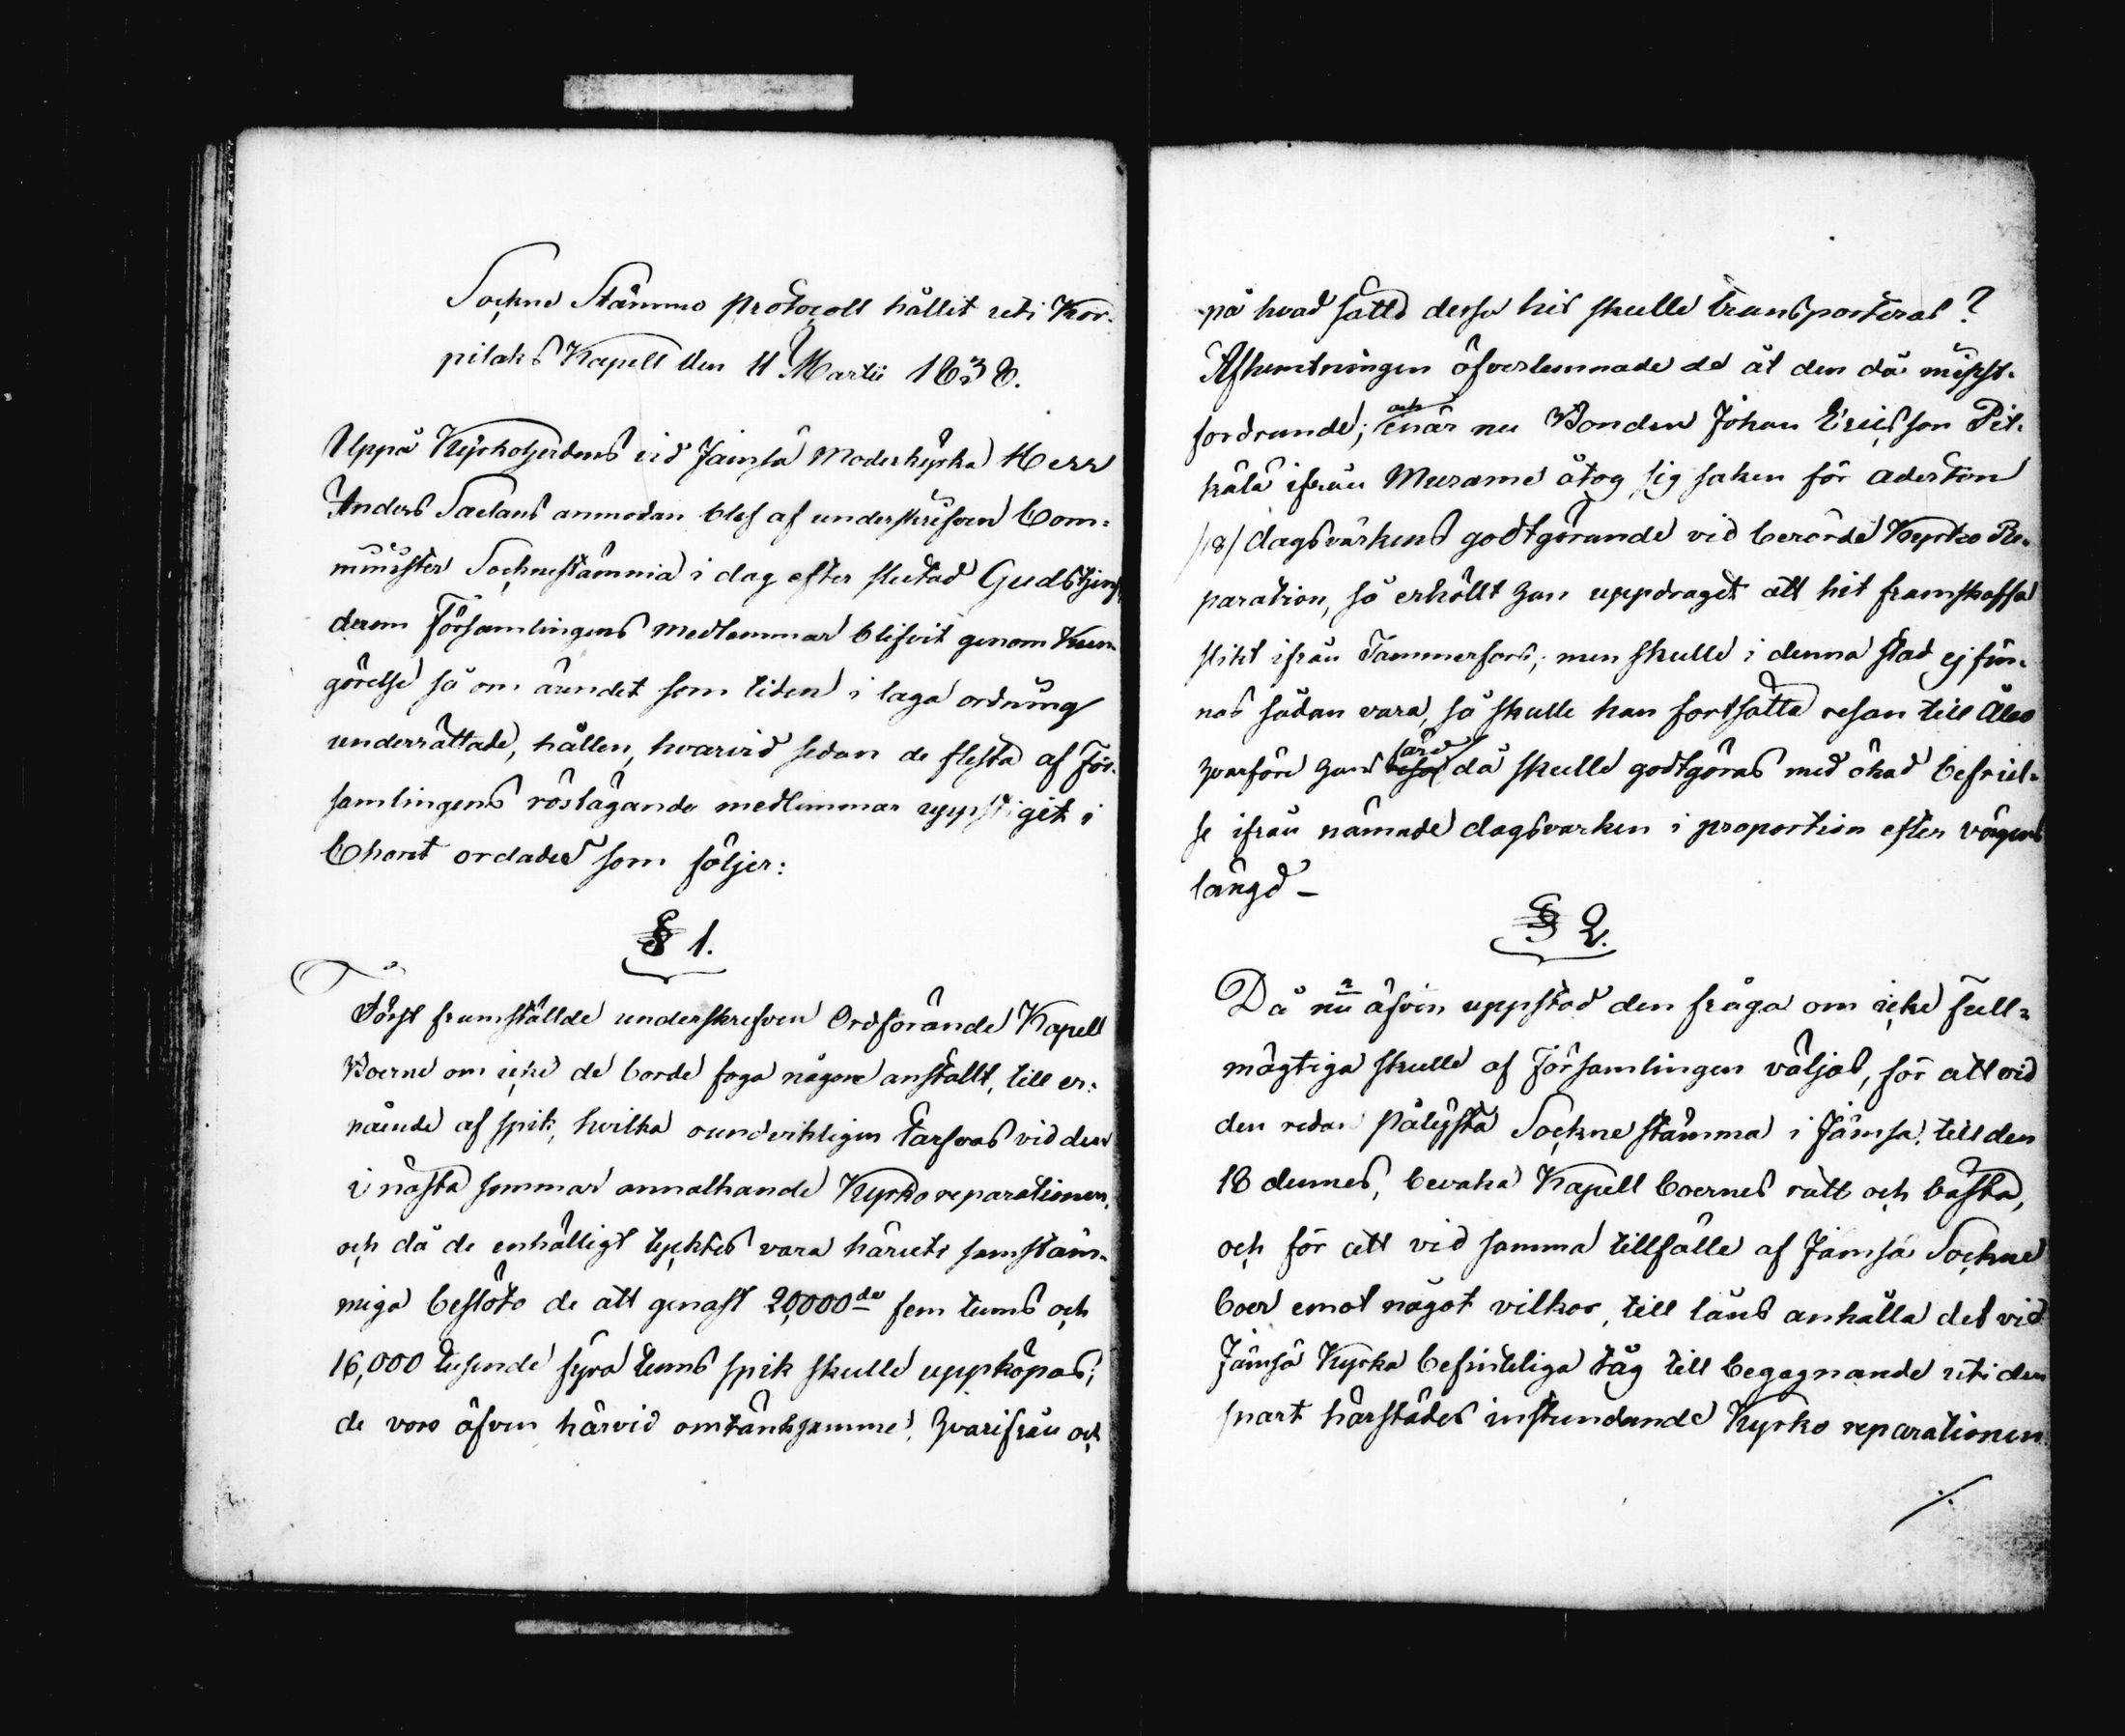 Sockne Stämmo protocoll hållit uti Kor-
pilaks Kapell den 11 Martii 1838.
Uppå Kyrkoherdens vid Jämsä Moderkyrka Herr
Anders Saelans anmodan blef af underskrefven Com-
minister Socknestämma i dag efter slutad Gudstjenst,
derom Församlingens medlemmar blifvit genom Kun-
görelse så om ärendet som tiden i laga ordning
underrättade, hållen, hvarvid sedan de flesta af För-
samlingens röstägande medlemmar uppstigit i
Choret ordades som följer:
§ 1.
Först framställde underskrefven Ordförande Kapell
Boerne om icke de borde foga någon anstallt, till er-
nående af spik, hvilka oundvikligen tarfvas vid den
i nästa sommar annalkande Kyrko reparationen,
och då de enhälligt tycktes vara häruti samstäm-
miga beslöto de att genast 20,000de fem tums och
16,000 tusende fyra tums spik skulle uppköpas;
de voro äfven härvid omtänksamme, hvarifrån och
på hvad sätt dessa hit skulle transporteras?
Afhemtningen öfverlemnade de åt den då minst-
fordrande; och enär nu Bonden Johan Ericsson Pit-
kälä ifrån Murame åtog sig saken för aderton
/18/ dagsvärkens godtgörande vid berörde Kyrko Re-
paration, så erhöllt han uppdraget att hit framskaffa
slikt ifrån Tammerfors; men skulle i denna stad ej fin-
nas sådan vara, så skulle han fortsätta resan till Åbo
hvarföre hans resa färd då skulle godtgöras med ökad befriel-
se ifrån nämnde dagsvärken i proportion efter vägens
längd –
§ 2.
Då nu äfven uppstod den fråga om icke full-
mägtiga skulle af Församlingen väljas, för att vid
den redan pålysta Sockne stämma i Jämsä, till den
18 dennes, bevaka Kapell boernes rätt och bästa,
och för att vid samma tillfälle af Jämsä Sockne
boer emot något vilkor, till låns anhålla det vid
Jämsä Kyrka befintliga tåg till begagnande uti den
snart härstädes instundande Kyrko reparationen
./.